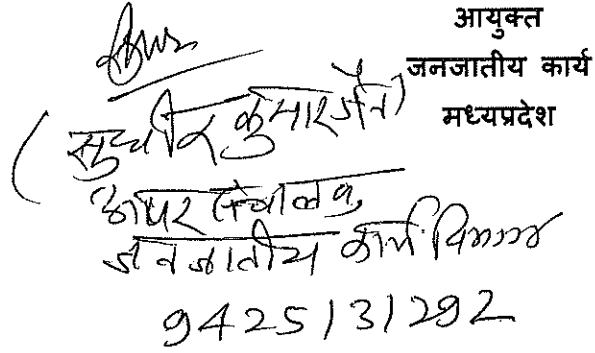 आयुक्त
जनजातीय कार्य
मध्यप्रदेश
(सुधीर कुमार जैन)
अपर संचालक
जनजातीय कार्य विभाग
9425131292